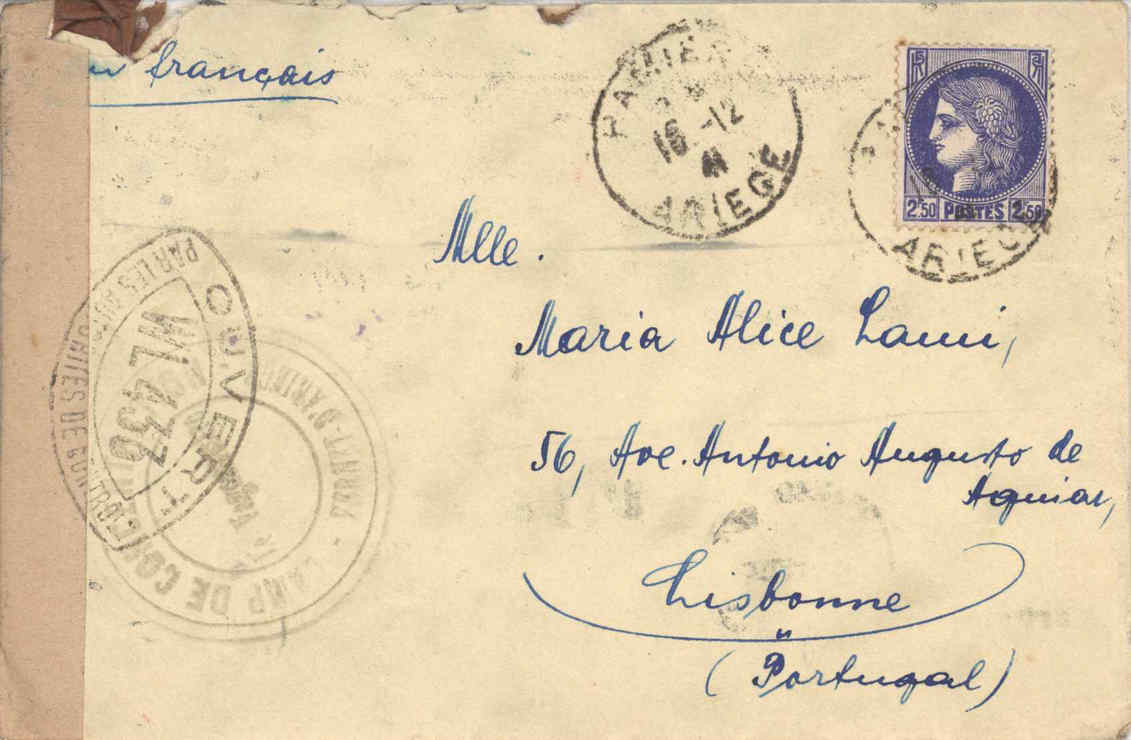 français
PAMIERS
16 -12
41
ARIEGE
2F50 POSTES 2F50
ARIEGE
Mlle.
Maria Alice Lami,
56, Ave. Antonio Augusto de
Aguiar,
Lisbonne
(Portugal)
OUVERT
WL 430
PAR LES AUTORITÉS DE CONTRÔLE
CAMP DE